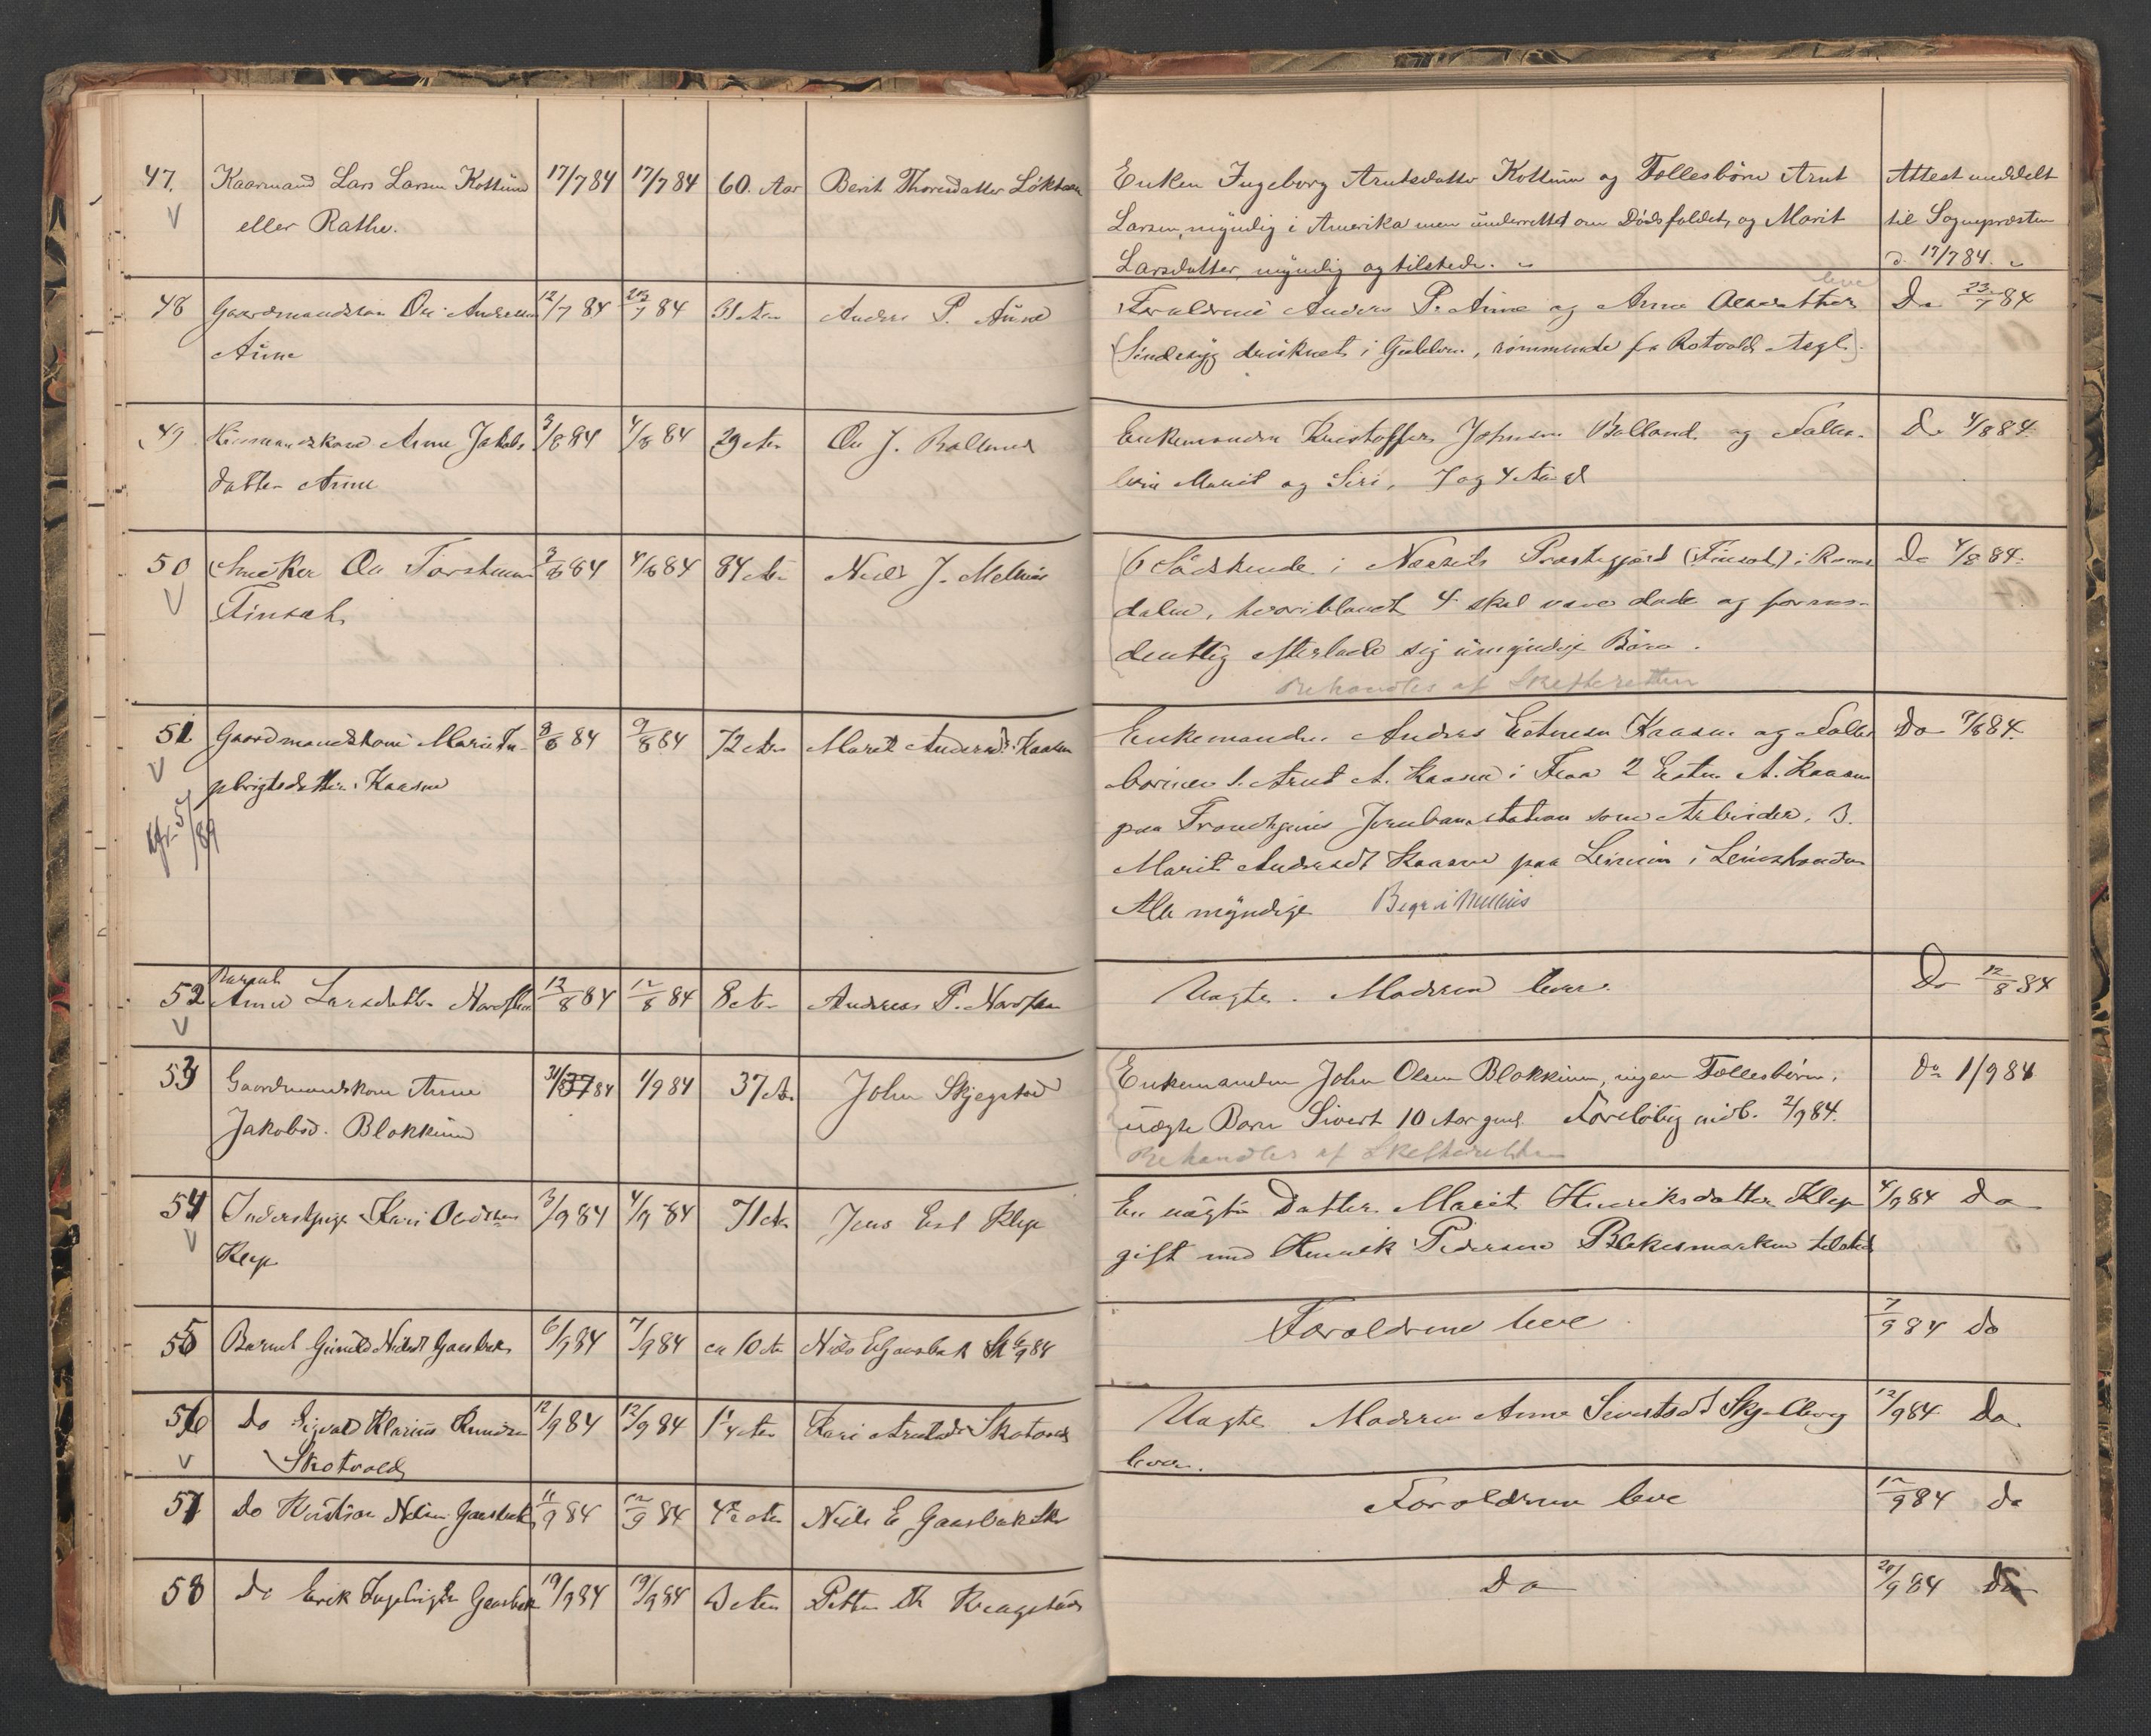 47. Kaarmand Lars Larsen Kottum 17/7 84 17/7 84 60 Aar Berit Thoresdatter Løkken
eller Rathe.
Enken Ingeborg Arntsdatter Kottum og Fællesbørn Arnt Attest meddelt
Larsen, myndig i Amerika men underrettet om Dødsfaldet, og Marit til Sognepræsten
Larsdatter, myndig og tilstede. d. 17/7 84.
48 Gaardmandssøn Ole Andersen 12/7 84 23/7 84 31 Aar Anders P. Aune
Aune
leve
Forældrene Anders P. Aune og Anne Do 23/7 84
(Sindssyg druknet i Guldelven, rømmende fra Rotvold Asyl).
49 Huusmandskone Anne Jakobs 3/8 84 4/8 84 29 Aar Ole J. Bolland
datter Aune
Enkemanden Kristoffer Johnsen Bolland og Fælles- Do 4/8 84.
børn Marit og Siri, 7 og 4 Aar
50 Ole Torstensen 3/8 84 4/8 84 84 Aar Niels J. Melhus
Finsah
6 Sødskende i Næssets Præstegjæld i Roms Do 4/8 84.
dalen, hvoriblandt 4 skal være døde og formo-
dentlig efterlade sig umyndige Børn.
Behandles af Skifteretten
51 Gaardmandskone Marit In- 8/8 84 9/8 84 72 Aar Marit Andersd. Kaasen
gebrigtsdatter Kaasen
57/89
Enkemanden Anders Estensen Kaasen og Fælles Do 9/8 84.
børnene 1. Arnt A. Kaasen i Flaa 2 Esten A. Kaasen
paa Trondhjems Jernbanestation som Arbeider, 3.
Marit Andersdt Kaasen paa Leinum i Leinstranden
Alle myndige Begr i Melhus
Barnet
52 Anne Larsdatter 12/8 84 12/8 84 8 Aar Andreas P.
Uægte. Moderen lever. Do 12/8 84
53 Gaardmandskone Anne 31/8 84 1/9 84 37 A. John Skjegstad
Jakobsd. Blokkum
Enkemanden John Olsen Blokkum, ingen Fællesbørn, Do 1/9 84
uægte Barn Sivert 10 Aar gml. Foreløbig 2/9 84.
Behandles af Skifteretten
54 Inderstpige Kari 3/9 84 4/9 84 71 Aar Jens Klep
Klep
En uægte Datter Marit Henriksdatter Klep 4/9 84 Do
gift med Henrik Pedersen tilsted
55 Barnet Gunild Nielsdt Gaasbak 6/9 84 7/9 84 ca 10 Aar Niels E Gaasbak 6/9 84
Forældrene leve 7/9 84 Do
56 Do Sigvald Klarius Knudsen 12/9 84 12/9 84 1 1/4 Aar Kari Skotvold
Skotvold
Uægte Moderen Anne Sivertsdt Skjelberg 12/9 84 Do.
lever.
57 Do Kristian Nielsen Gaasbak 11/9 84 12/9 84 4 1/2 Aar Niels E Gaasbak
Forældrene leve 12/9 84 do
58 Do Erik Ingebrigtsen Gaasbak 19/9 84 19/9 84 Aar Petter Kregstad
Do 20/9 84 Do